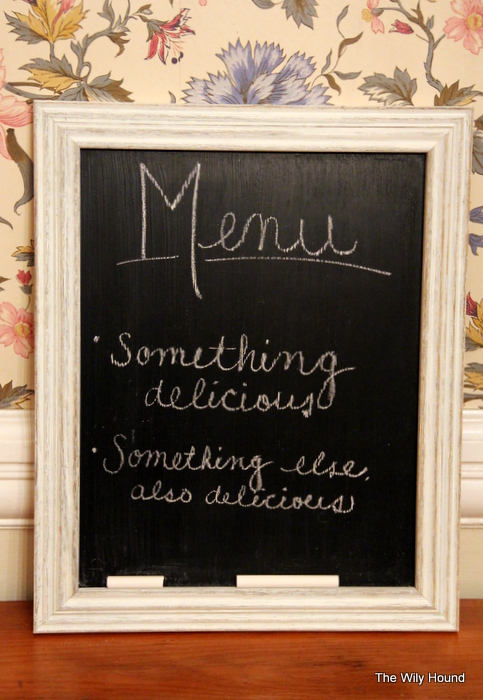 Menu
· Something
delicious
· Something else,
also delicious
The Wily Hound